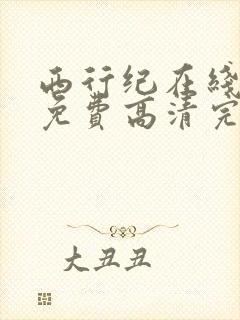 西行纪在线
免费高清完
大丑丑